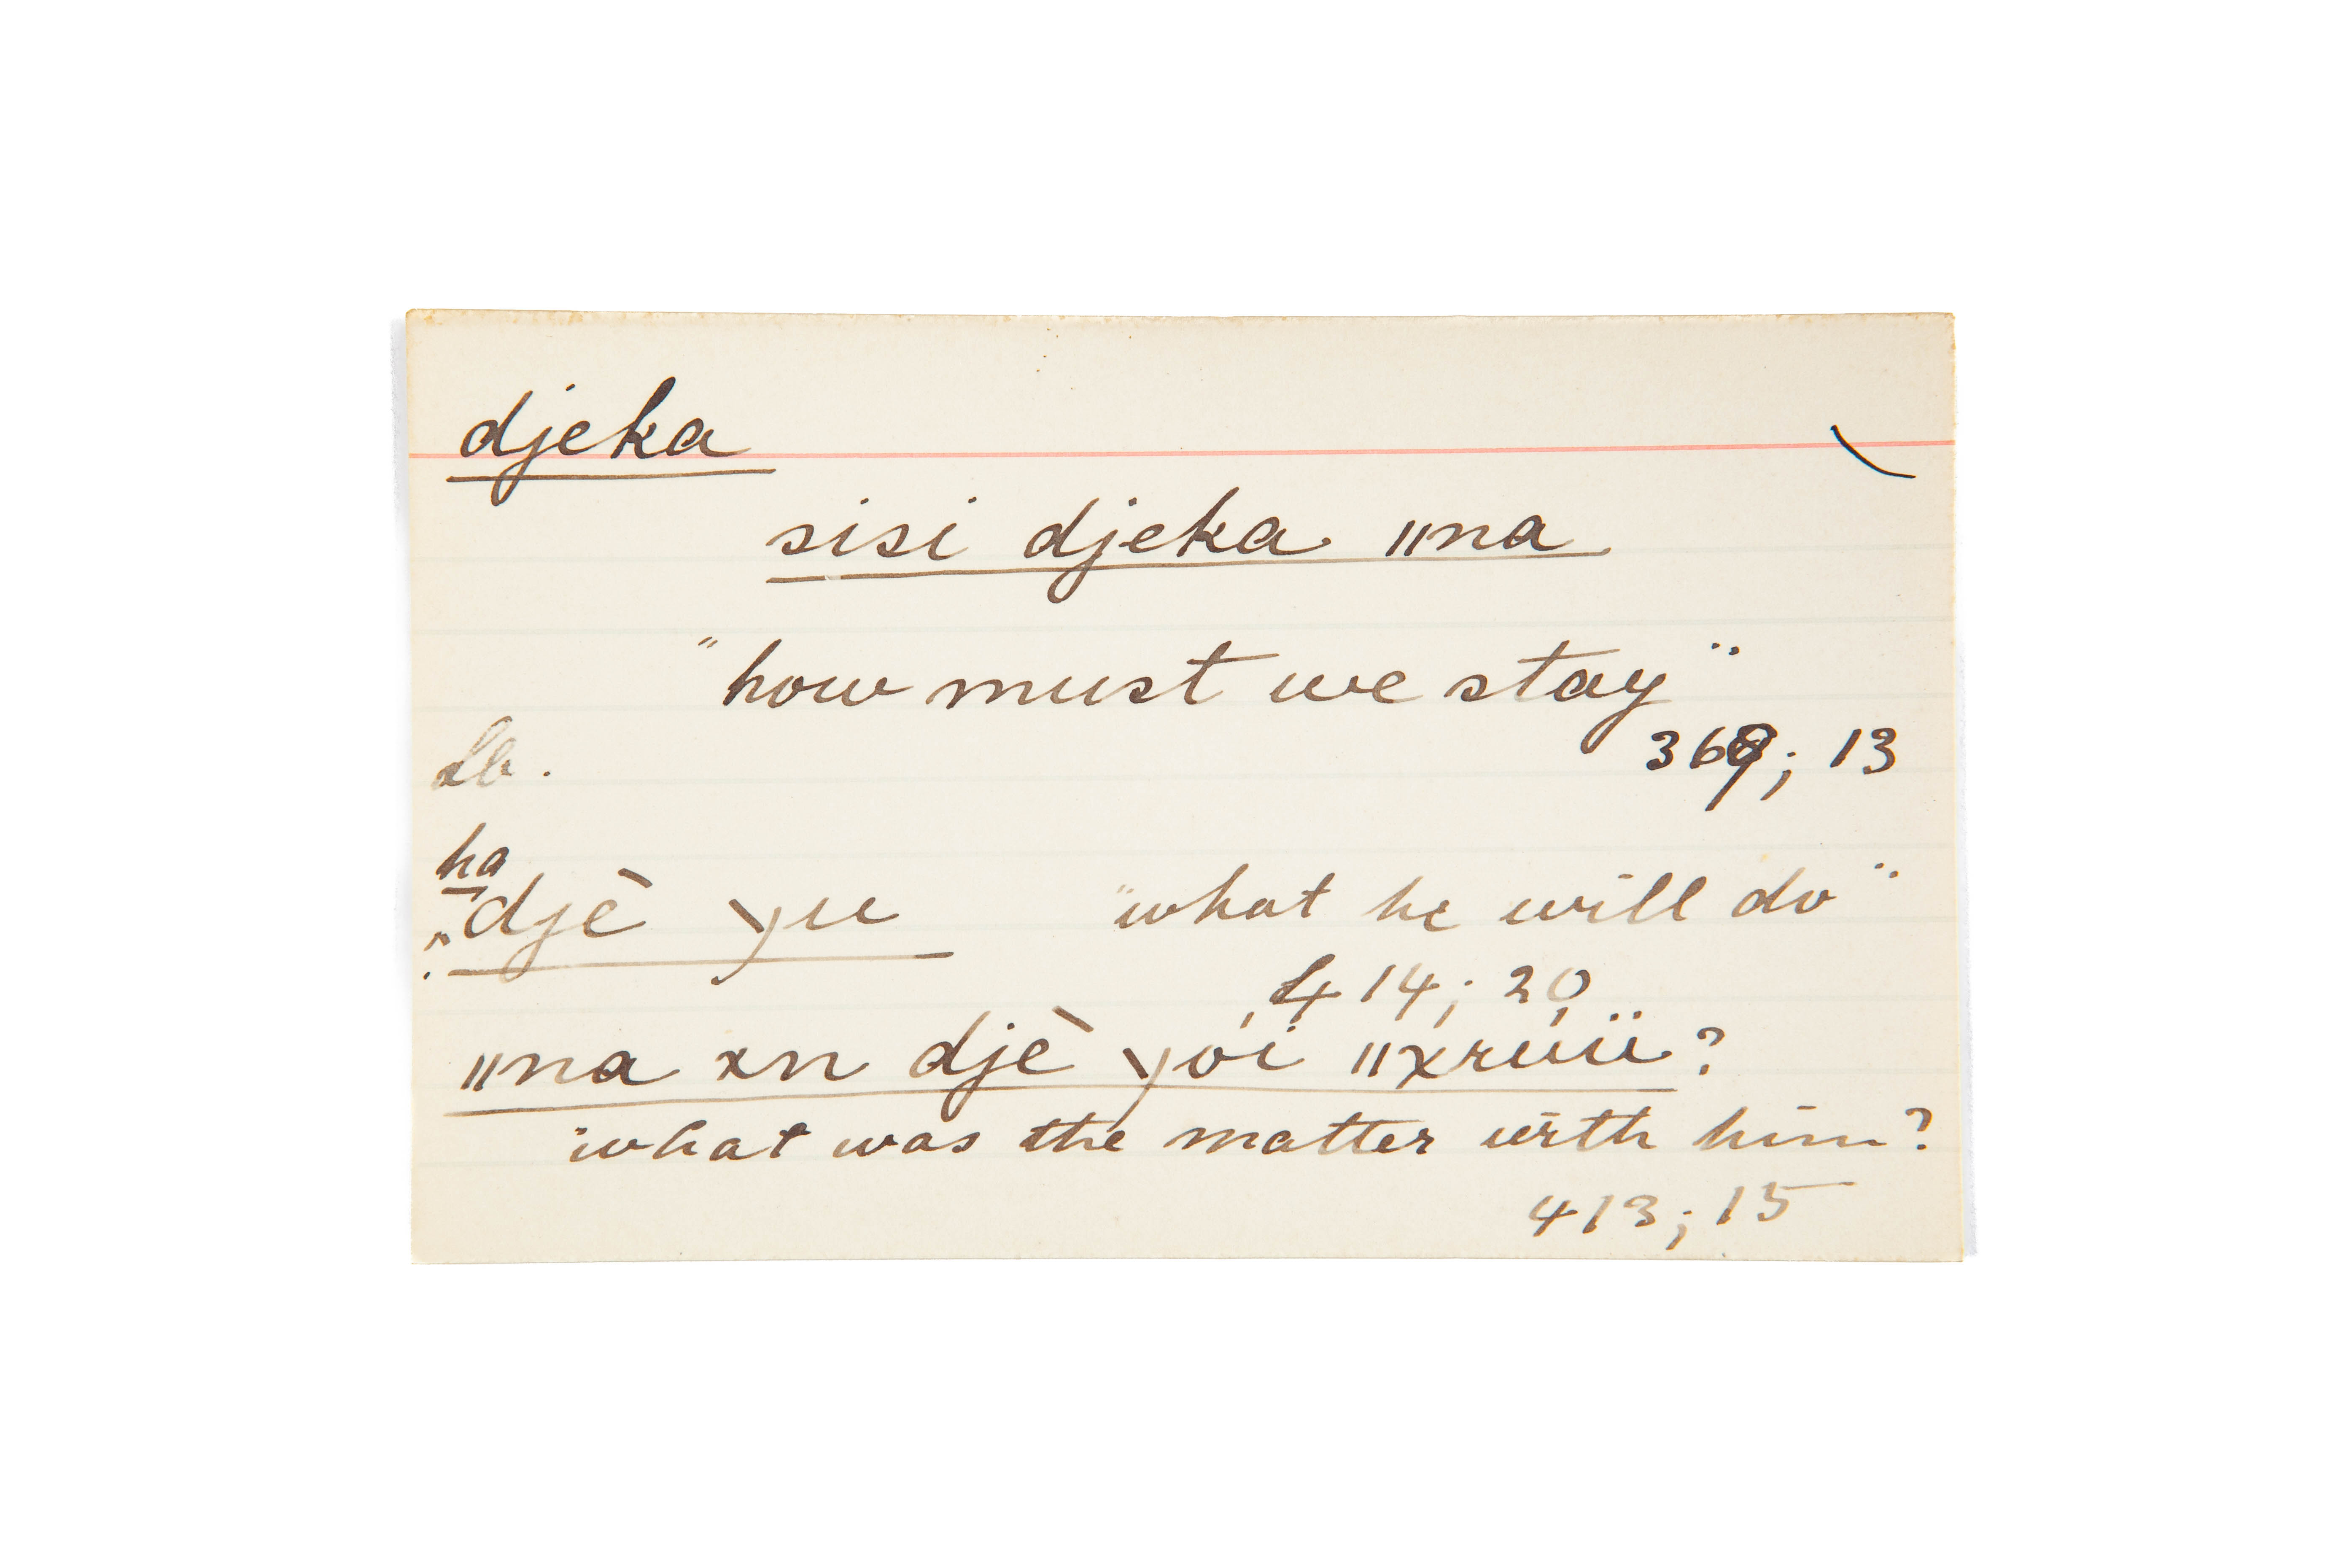 djeka
sisi djeka ǁna
"how must we stay"
Lb. 369; 13
ha
djè yu "what he will do"
414; 20
ǁna xn djè yói ǁxrúïi?
"what was the matter with him?
413; 15